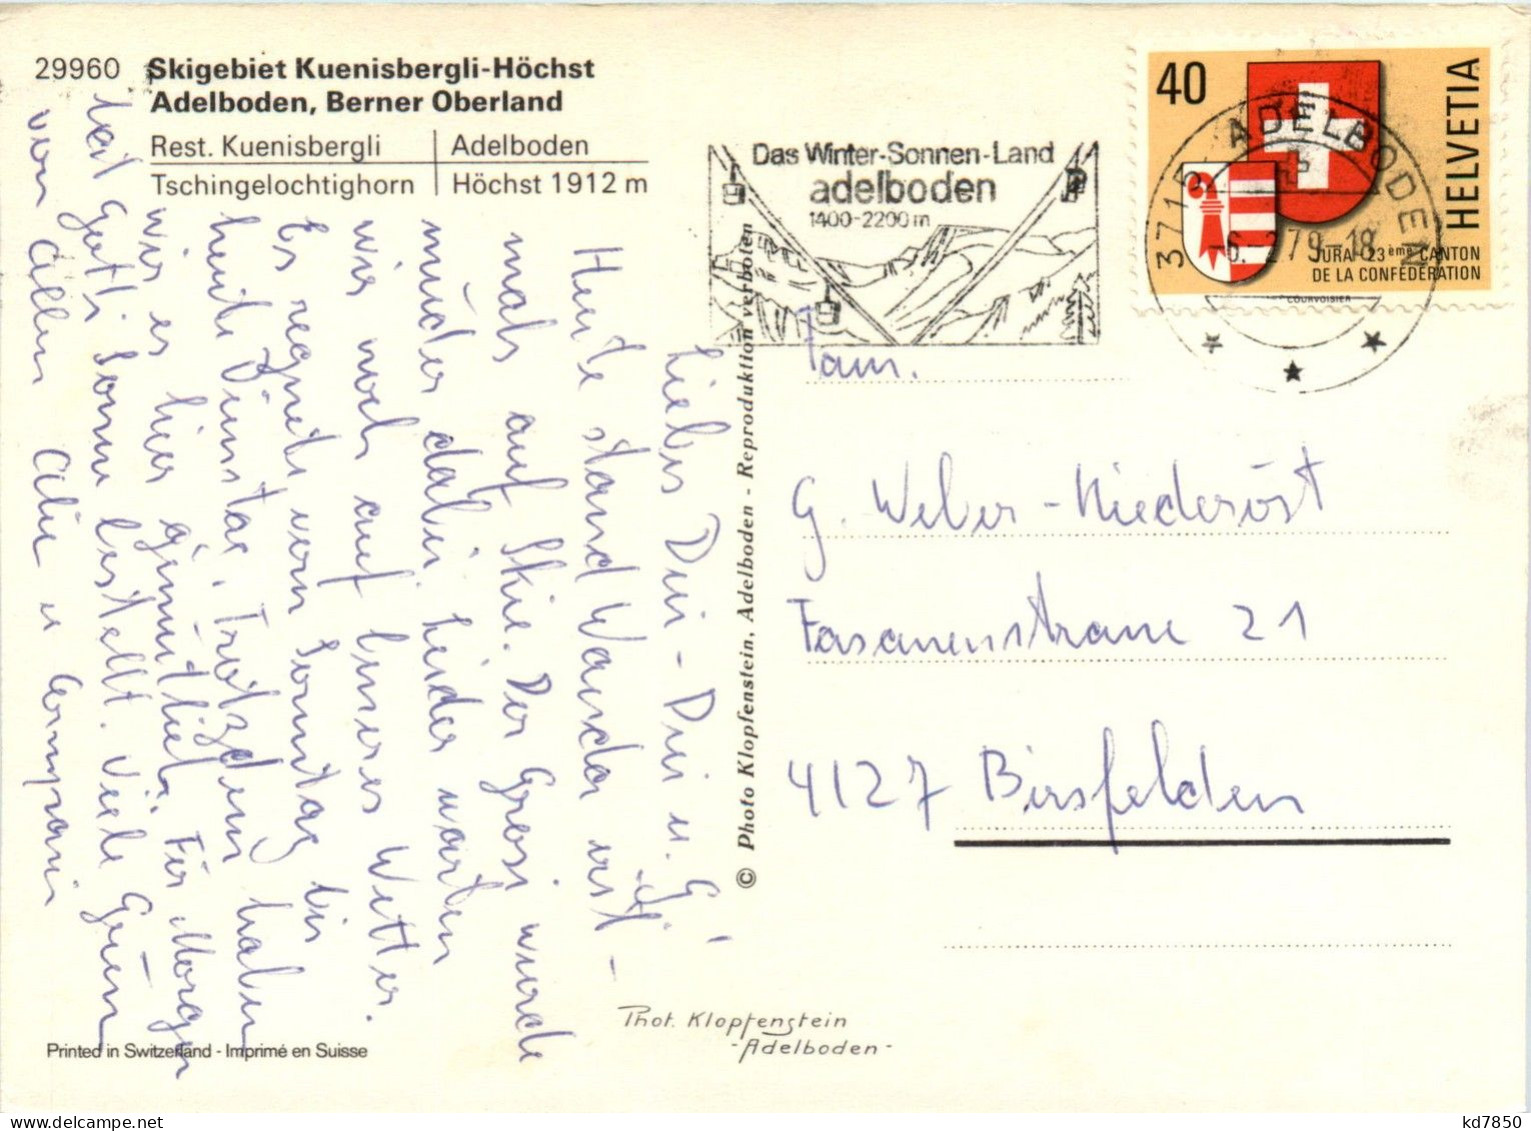 29960 Skigebiet Kuenisbergli-Höchst
Adelboden, Berner Oberland
Rest. Kuenisbergli | Adelboden
Tschingelochtighorn | Höchst 1912 m
Das Winter-Sonnen-Land
adelboden
1400-2200 m
40
HELVETIA
JURA 23ème CANTON
DE LA CONFÉDÉRATION
COURVOISIER
3715 ADELBODEN
-6.-2.79-18
Liebs Dui-Dui u. G.!
Heute stand Wandern
mals auf Skie. Der Grosi wurde
müder dabei. Leider warten
wir noch auf besseres Wetter.
Es regnete vom Sonntag bis
heute Dienstag. Trotzdem haben
wir es hier gemütlich. Für Morgen
hat Gott Sonne bestellt. Viele Grüsse
von Allen
© Photo Klopfenstein, Adelboden - Reproduktion verboten
Fam.
G. Weber-Niederöst
Fasanenstrasse 21
4127 Birsfelden
Phot. Klopfenstein
-Adelboden-
Printed in Switzerland - Imprimé en Suisse
kd7850